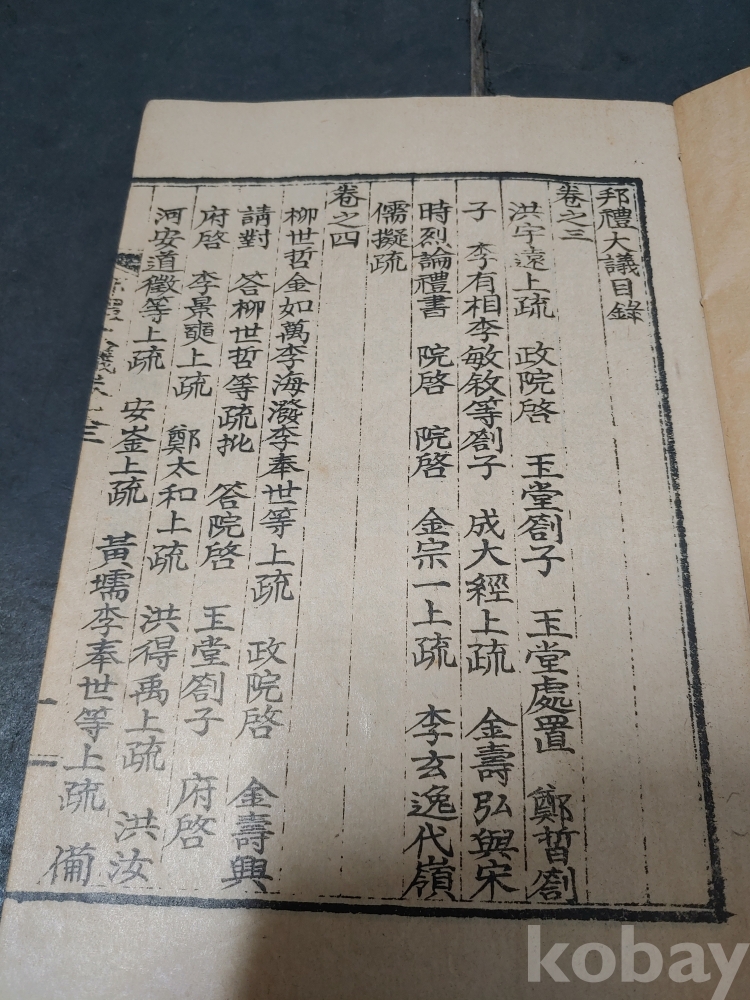 邦禮大議目錄
卷之三
洪宇遠上疏 政院啓 玉堂劄子 玉堂處置 鄭晢劄
子 李有相李敏敘等劄子 成大經上疏 金壽弘與宋
時烈論禮書 院啓 院啓 金宗一上疏 李玄逸代嶺
儒擬疏
卷之四
柳世哲金如萬李海潑李奉世等上疏 政院啓 金壽興
請對 答柳世哲等疏批 答院啓 玉堂劄子 府啓
府啓 李景奭上疏 鄭太和上疏 洪得禹上疏 洪汝
河安道徵等上疏 安崟上疏 黃壖李奉世等上疏 備
kobay